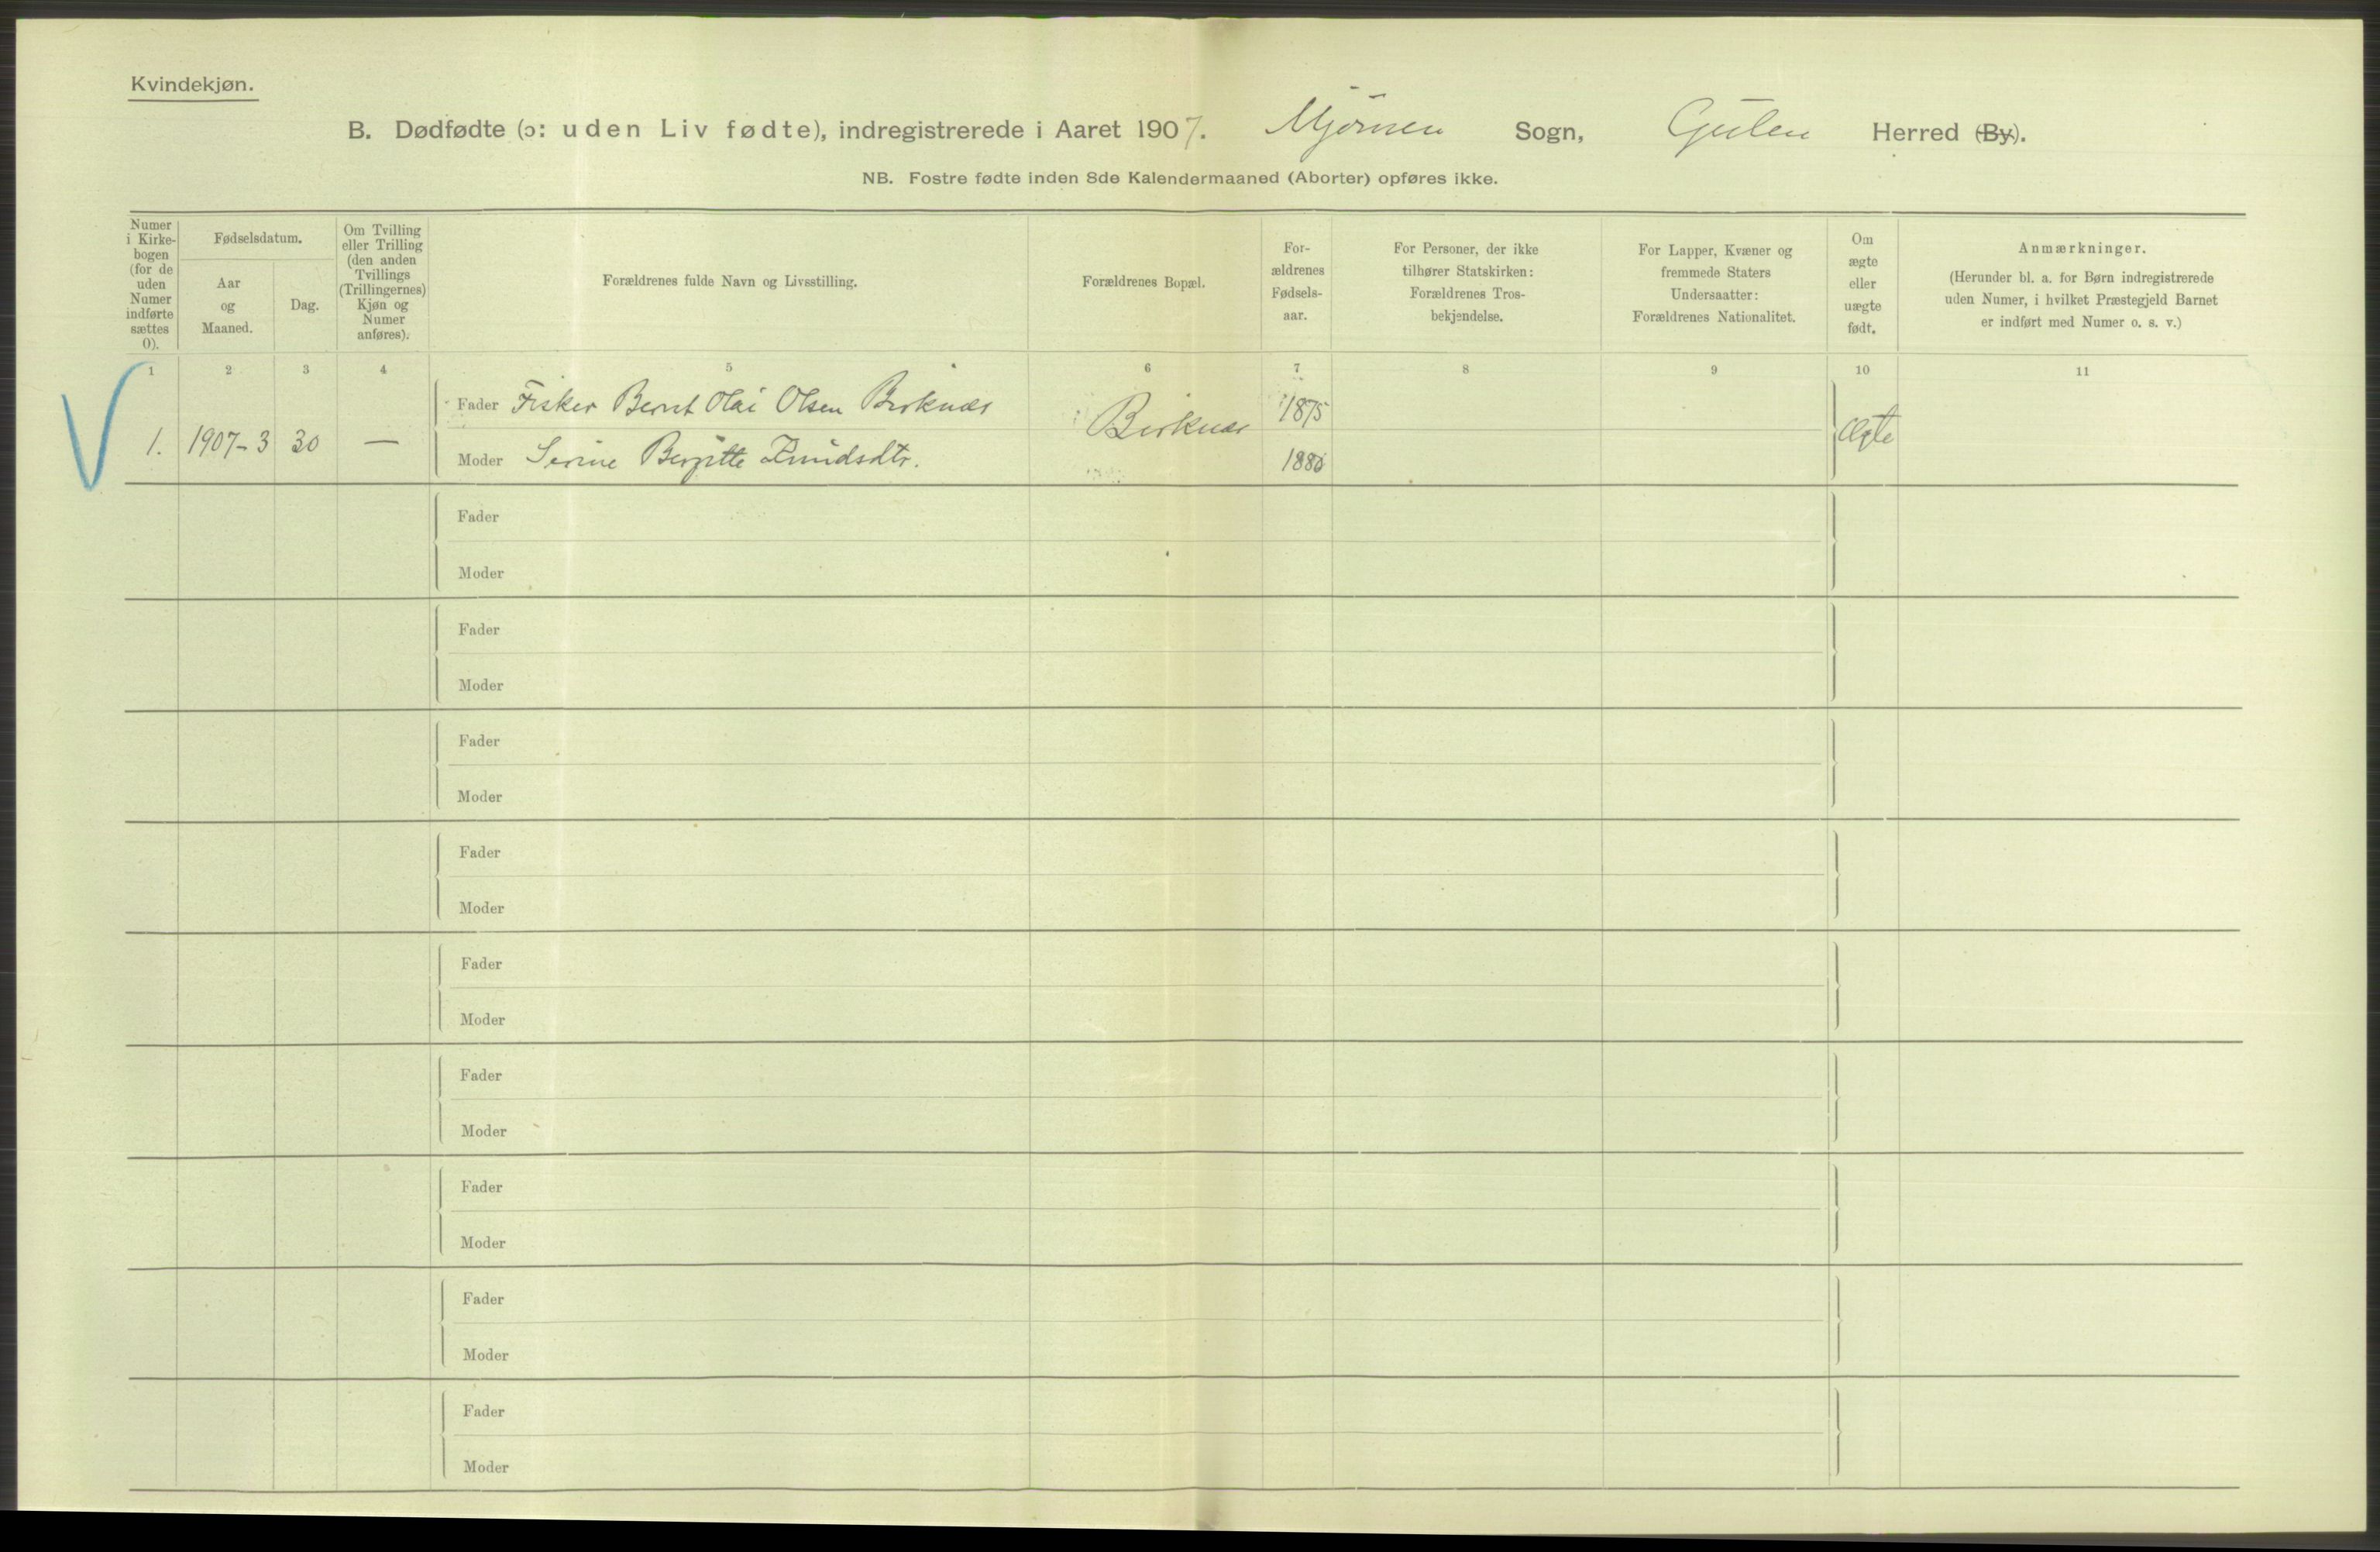 Kvindekjøn.
B. Dødfødte (ɔ: uden Liv fødte), indregistrerede i Aaret 1907. Mjømen Sogn, Gulen Herred (By).
NB. Fostre fødte inden 8de Kalendermaaned (Aborter) opføres ikke.
Numer
i Kirke-
bogen
(for de
uden
Numer
indførte
sættes
0).
Fødselsdatum.
Aar
og
Maaned.
Dag.
Om Tvilling
eller Trilling
(den anden
Tvillings
(Trillingernes)
Kjøn og
Numer
anføres).
Forældrenes fulde Navn og Livsstilling.
Forældrenes Bopæl.
For-
ældrenes
Fødsels-
aar.
For Personer, der ikke
tilhører Statskirken:
Forældrenes Tros-
bekjendelse.
For Lapper, Kvæner og
fremmede Staters
Undersaatter:
Forældrenes Nationalitet.
Om
ægte
eller
uægte
født.
Anmærkninger.
(Herunder bl. a. for Børn indregistrerede
uden Numer, i hvilket Præstegjeld Barnet
er indført med Numer o. s. v.)
1 2 3 4 5 6 7 8 9 10 11
Fader Fisker Bernt Olai Olsen Birknæs 1875
1. 1907-3 30 — Birknæs Ægte
Moder Serine Bergitte Knudsdtr. 1880
Fader
Moder
Fader
Moder
Fader
Moder
Fader
Moder
Fader
Moder
Fader
Moder
Fader
Moder
Fader
Moder
Fader
Moder